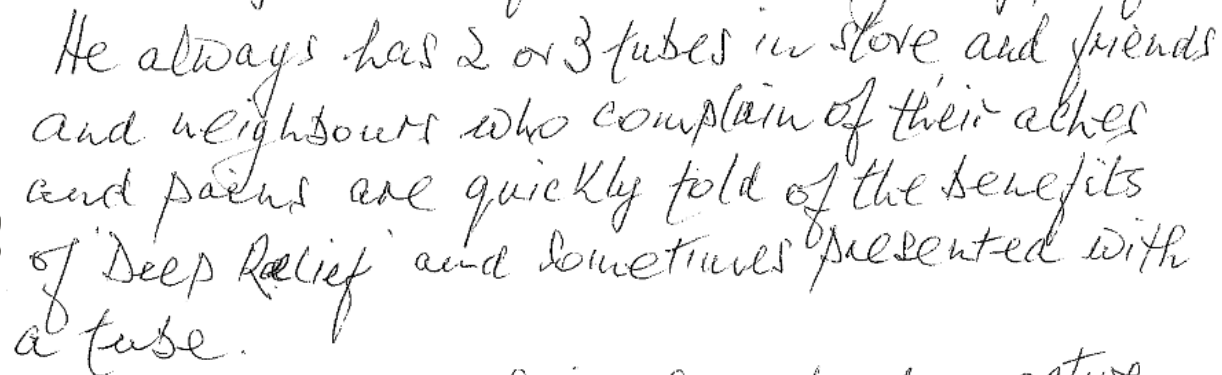 He always has 2 or 3 tubes in store, and friends
and neighbours who complain of their aches
and pains are quickly told of the benefits
of 'Deep Relief' and sometimes presented with
a tube.